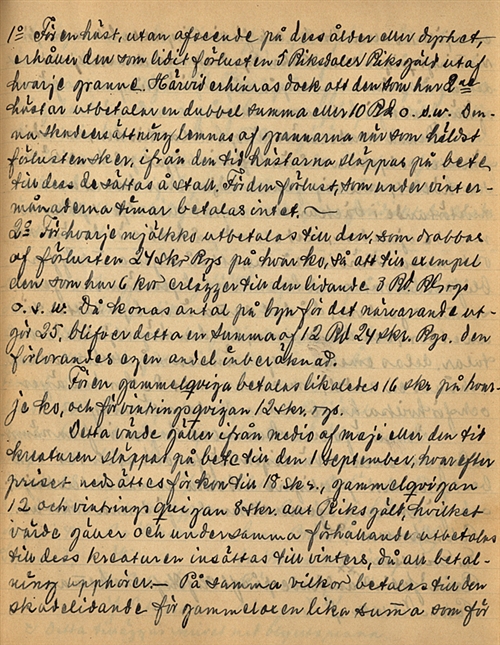 1º För en häst, utan afseende på dess ålder eller dyrhet,
erhåller den som lidit förlusten 5 Riksdaler Riksgäld utaf
hvarje granne. Härvid erhinras dock att den som har 2ne
hästar utbetalar en dubbel summa eller 10 Rd o.s.w. Den-
na skadeersättning lemnas af grannarna när som hälst
förlusten sker, ifrån den tid hästarna släppas på bete
till dess de sättas å stall. För den förlust, som under vinter-
månaderna timar betalas intet.
2º För hvarje mjölkko utbetalas till den, som drabbas
af förlusten 24 skr Rgs på hvar ko, så att till exempel
den som har 6 kor erlägger till den lidande 3 Rd. Rgs
o. s. w. Då konas antal på byn för det närvarande ut-
gör 25, blifver detta en summa af 12 Rd 24 skr. Rgs. den
förlorandes egen andel inberäknad.
För en gammelqviga betalas likaledes 16 skr på hvar-
je ko, och för vintringsqvigan 12 skr. rgs.
Detta värde gäller ifrån medio af maji eller den tid
kreaturen släppas på bete till den 1 september, hvarefter
priset nedsättes för kon till 18 skr., gammelqvigan
12 och vintringsqvigan 8 skr. allt Riksgäld, hvilket
värde gäller och under samma förhållande utbetalas
till dess kreaturen insättas till vinters, då all betal-
ning upphörer. — På samma vilkor betales till den
skadelidande för gammeloxen lika summa som för